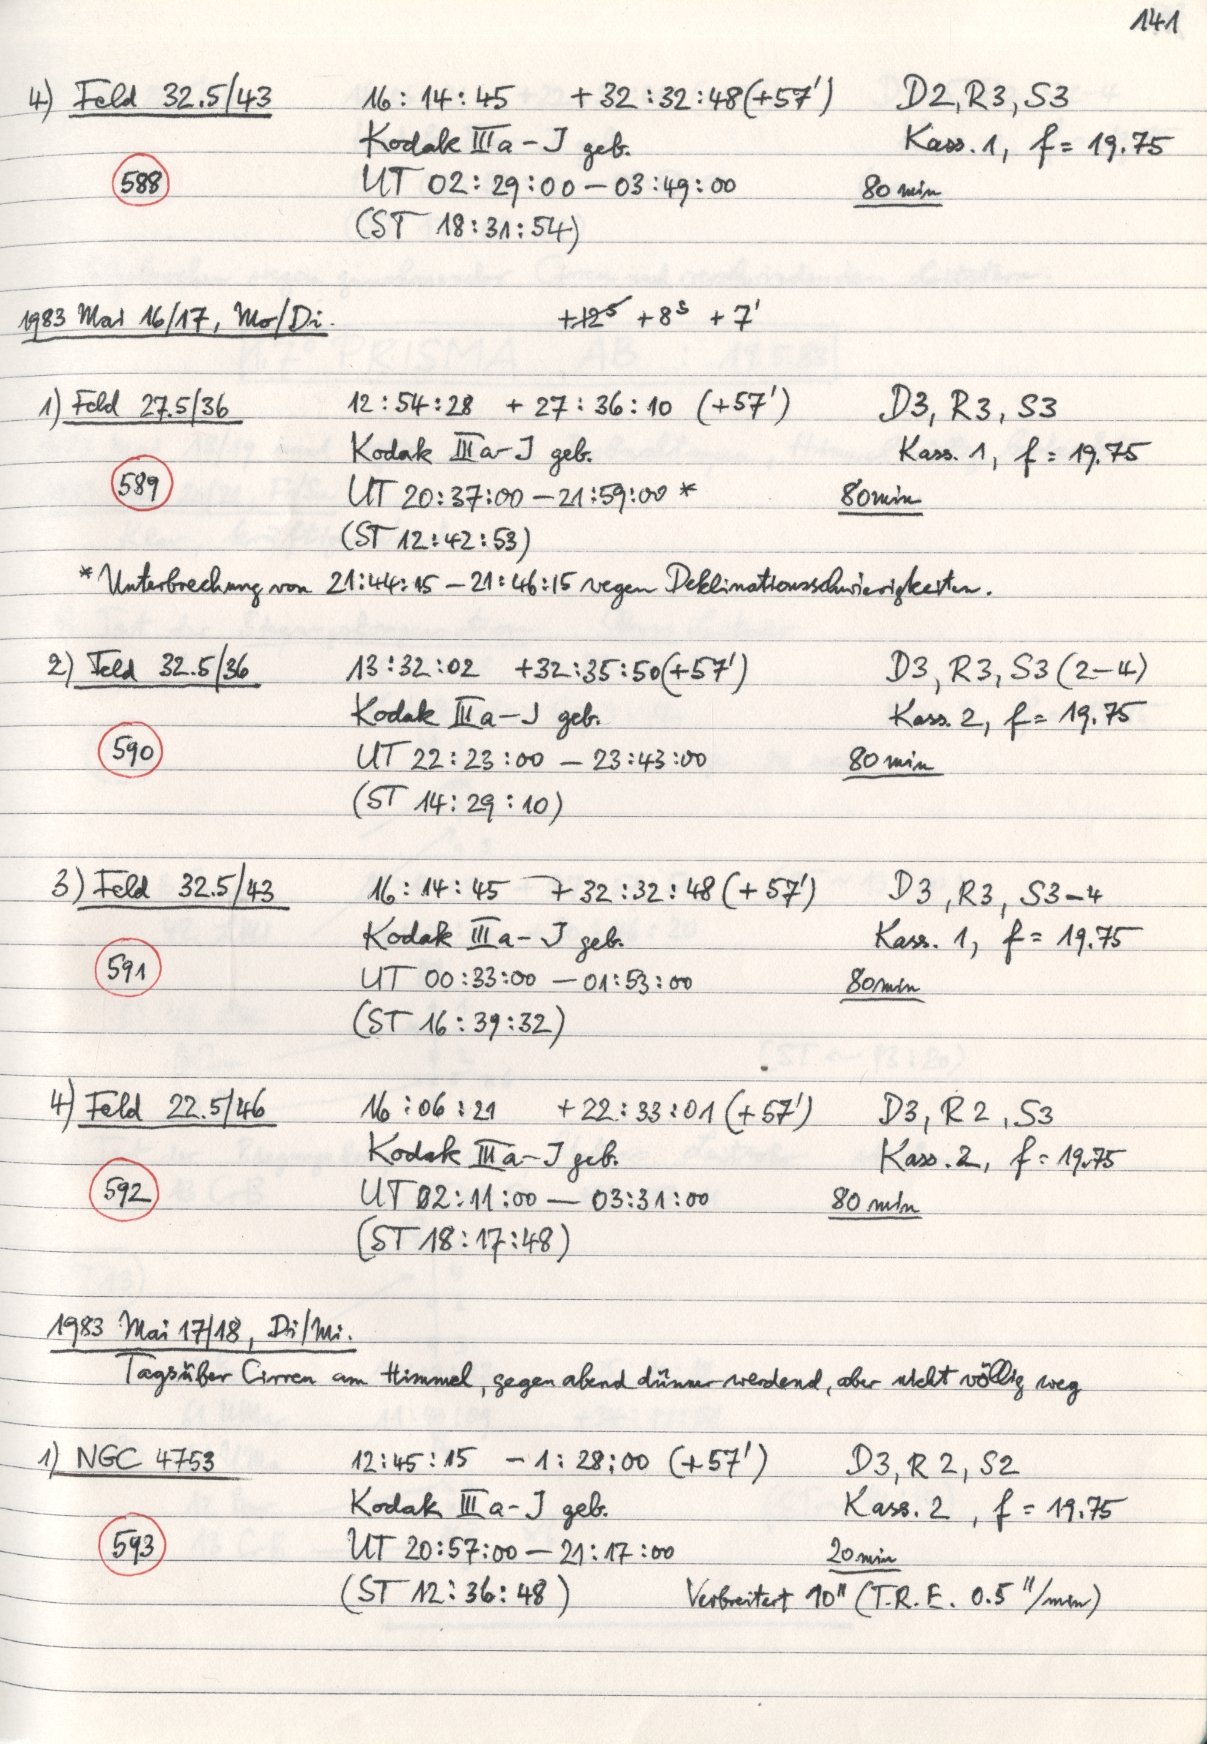 141
4) Feld 32.5/43 16:14:45 +32:32:48(+57') D2, R3, S3
Kodak IIIa-J geb. Kass. 1, f = 19.75
588 UT 02:29:00 – 03:49:00 80 min
(ST 18:31:54)
1983 Mai 16/17, Mo/Di. +12s +8s +7'
1) Feld 27.5/36 12:54:28 +27:36:10 (+57') D3, R3, S3
Kodak IIIa-J geb. Kass. 1, f = 19.75
589 UT 20:37:00 – 21:59:00 * 80min
(ST 12:42:53)
* Unterbrechung von 21:44:15 – 21:46:15 wegen Deklinationsschwierigkeiten.
2) Feld 32.5/36 13:32:02 +32:35:50(+57') D3, R3, S3 (2-4)
Kodak IIIa-J geb. Kass. 2, f = 19.75
590 UT 22:23:00 – 23:43:00 80 min
(ST 14:29:10)
3) Feld 32.5/43 16:14:45 +32:32:48 (+57') D3, R3, S3-4
Kodak IIIa-J geb. Kass. 1, f = 19.75
591 UT 00:33:00 – 01:53:00 80min
(ST 16:39:32)
4) Feld 22.5/46 16:06:21 +22:33:01 (+57') D3, R2, S3
Kodak IIIa-J geb. Kass. 2, f = 19.75
592 UT 02:11:00 – 03:31:00 80 min
(ST 18:17:48)
1983 Mai 17/18, Di/Mi.
Tagsüber Cirren am Himmel, gegen abend dünner werdend, aber nicht völlig weg
1) NGC 4753 12:45:15 -1:28:00 (+57') D3, R2, S2
Kodak IIIa-J geb. Kass. 2, f = 19.75
593 UT 20:57:00 – 21:17:00 20min
(ST 12:36:48) Verbreitert 10" (T.R.E. 0.5"/min)